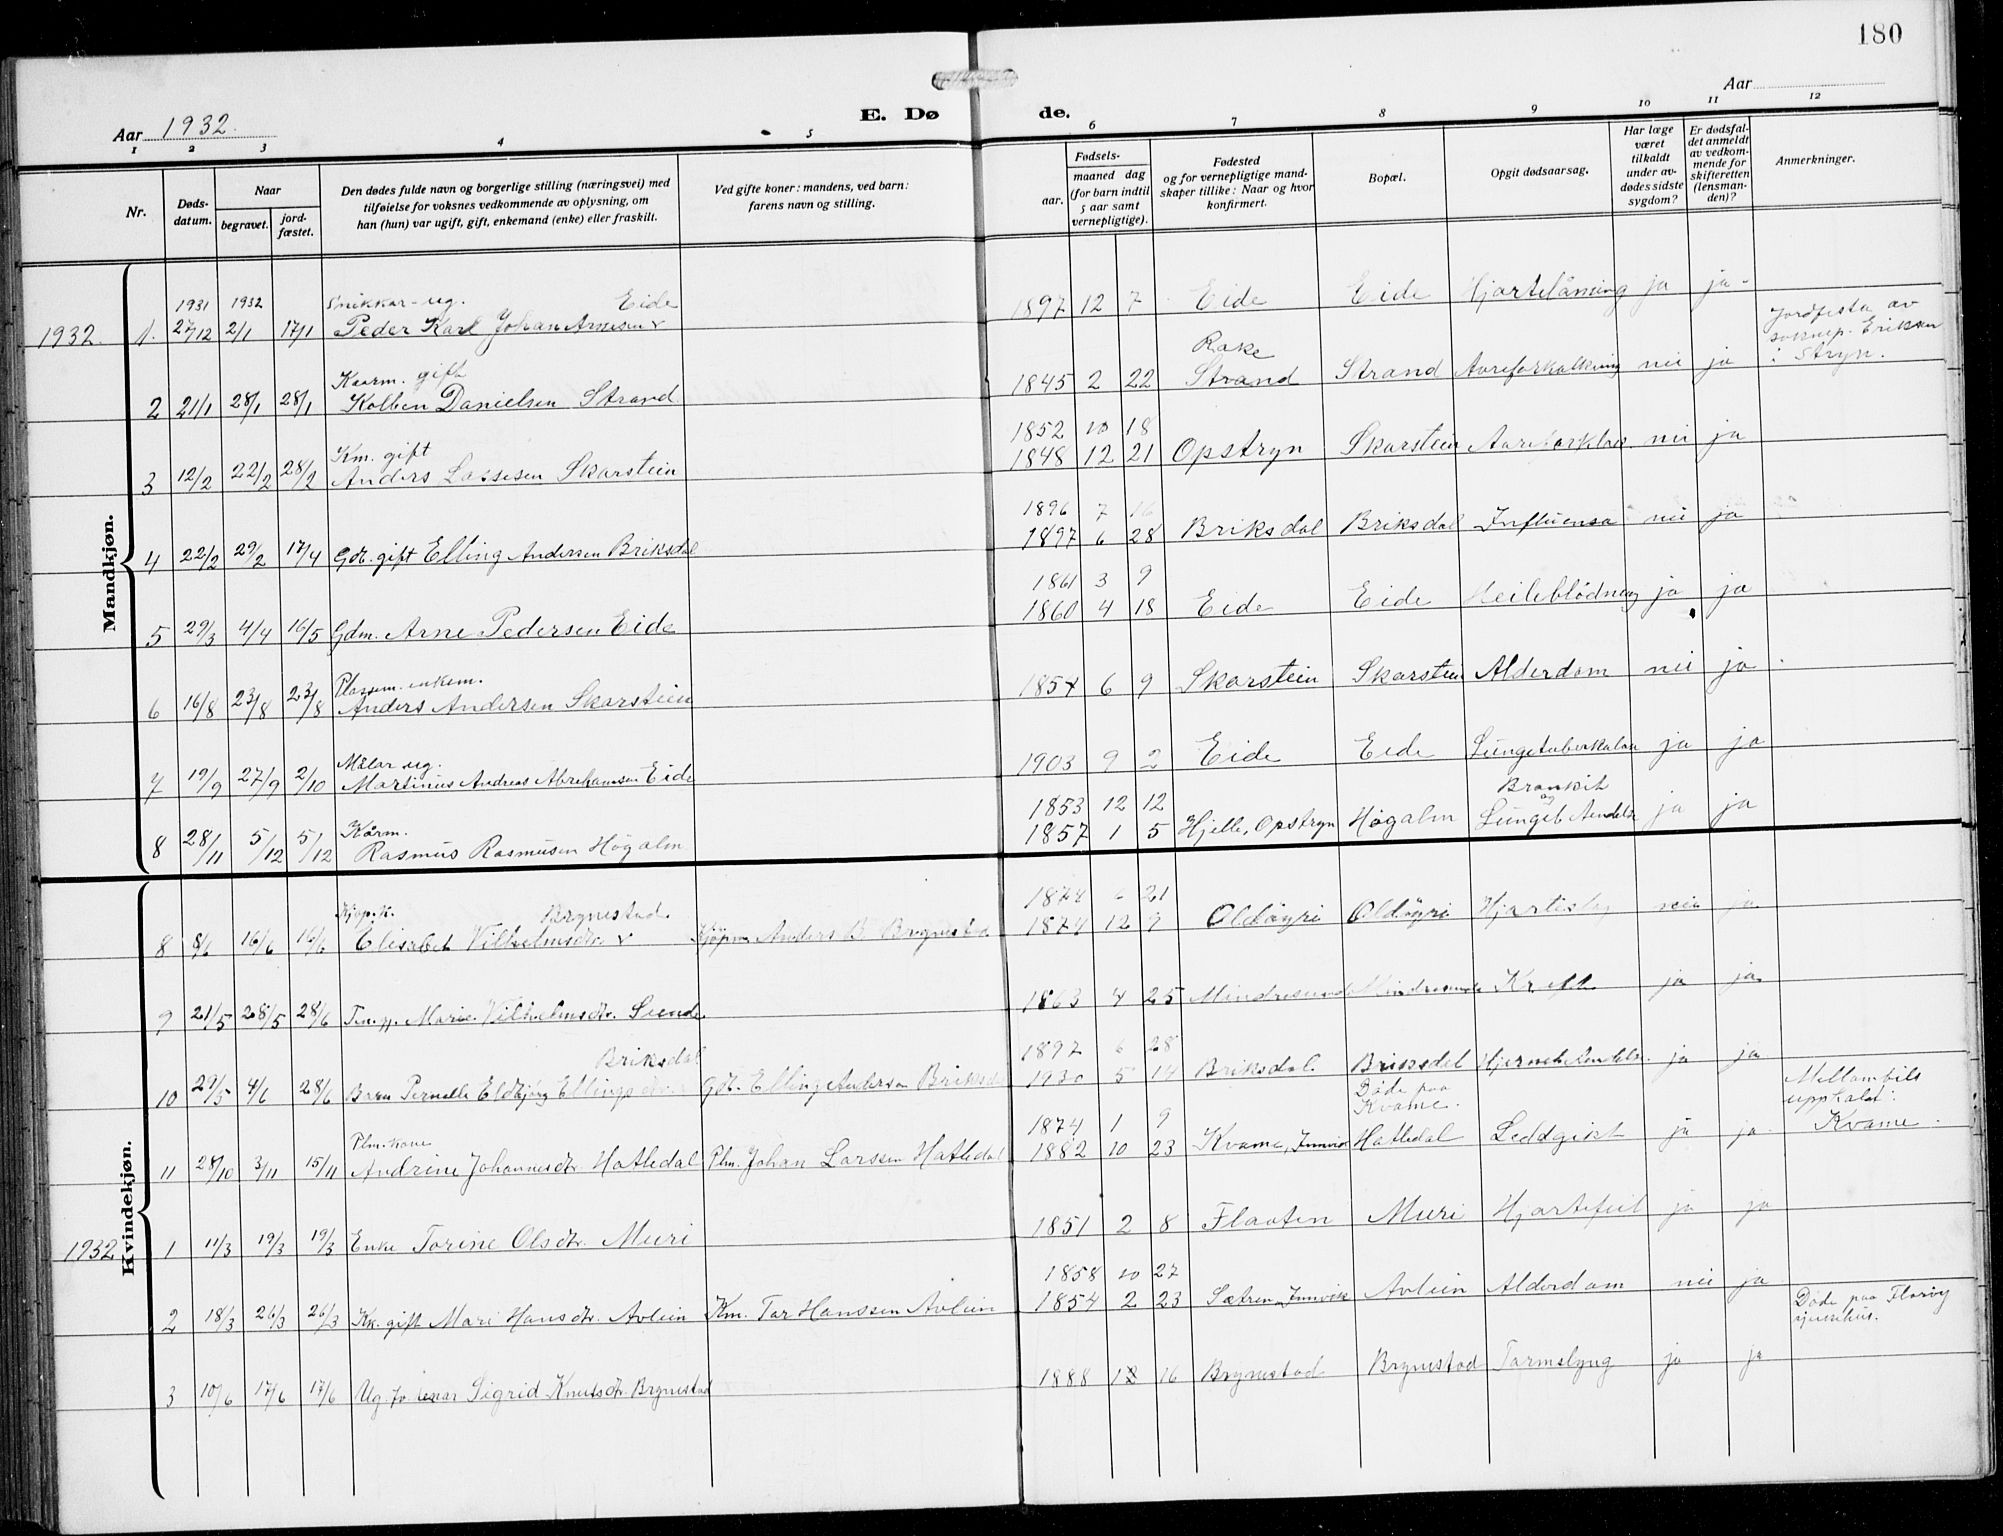 180
Aar 1932.
E. Døde.
Aar
1 2 3 4 5 6 7 8 9 10 11 12
Nr.
Døds-datum.
Naar
begravet.
jord-fæstet.
Den dødes fulde navn og borgerlige stilling (næringsvei) med tilføielse for voksnes vedkommende av oplysning, om han (hun) var ugift, gift, enkemand (enke) eller fraskilt.
Ved gifte koner: mandens, ved barn: farens navn og stilling.
Fødsels-
aar. maaned dag
(for barn indtil 5 aar samt vernepligtige).
Fødested og for vernepligtige mandskaper tillike: Naar og hvor konfirmert.
Bopæl.
Opgit dødsaarsag.
Har læge været tilkaldt under avdødes sidste sygdom?
Er dødsfaldet anmeldt av vedkommende for skifteretten (lensmanden)?
Anmerkninger.
Mandkjøn.
1931 1932 Snikkar-ug. Eide
1932. 1. 27/12 2/1 17/1 Peder Karl Johan Arnesen 1897 12 7 Eide Eide Hjartelåming ja ja
Kaarm. gift Rake
2 21/1 28/1 28/1 Kolben Danielsen Strand 1845 2 22 Strand Strand Aareforkalkning nei ja Jordfesta av soknep. Eriksen i Stryn.
Km. gift 1852 10 18
3 12/2 22/2 28/2 Anders Lassesen Skarstein 1848 12 21 Opstryn Skarstein nei ja
1896 7 16
4 22/2 29/2 17/4 Gdr. gift Elling Andersen Briksdal 1897 6 28 Briksdal Briksdal Influensa nei ja
1861 3 9
5 29/3 4/4 16/5 Gdm. Arne Pedersen Eide 1860 4 18 Eide Eide Heileblødning ja ja
Plassm. enkem.
6 16/8 23/8 23/8 Anders Andersen Skarstein 1854 6 9 Skarstein Skarstein Alderdom nei ja
Målar ug.
7 19/9 27/9 2/10 Martinus Andreas Abrahamsen Eide 1903 9 2 Eide Eide Lungetuberkulose ja ja
Kårm. 1853 12 12 Bronkit og
8 28/11 5/12 5/12 Rasmus Rasmusen Högalm 1857 1 5 Hjelle, Opstryn Högalm Lungebetendelse ja ja
Kvindekjøn.
Kjøp.k. Brynestad 1874 6 21
8 8/6 16/6 16/6 Elisabet Vilhelmsdtr. Kjöpm Anders B. Brynestad 1874 12 9 Oldöyri Oldöyri nei ja
9 21/5 28/5 28/6 Marie Vilhelmsdtr. Sunde 1863 4 25 Mindresunde Mindresunde Kreft ja ja
Briksdal 1897 6 28
10 29/5 4/6 28/6 Barn Pernelle Eldbjörg Ellingsdtr. Gdr. Elling Andersen Briksdal 1930 5 14 Briksdal. Briksdal Hjernebetendelse ja ja
Döde paa Kvame.
Plm. kone 1874 1 9 Mellambils upphald i Kvame.
11 28/10 3/11 15/11 Andrine Johannesdtr. Hatledal Plm. Johan Larssen Hatledal 1882 10 23 Kvame, Innvik Hatledal Leddgikt ja ja
1932 1 11/3 19/3 19/3 Enke Torine Olsdtr. Muri 1851 2 8 Flaaten Muri Hjartefeil ja ja
1858 10 27
2 18/3 26/3 26/3 Kk. gift Mari Hansdtr. Avlein Km. Tar Hanssen Avlein 1854 2 23 Sætren, Innvik Avlein Alderdom nei ja
Døde paa Florøy sjukehus.
3 10/6 17/6 17/6 Ug. Sigrid Knutsdtr. Brynestad 1888 12 16 Brynestad Brynestad Tarmslyng ja ja